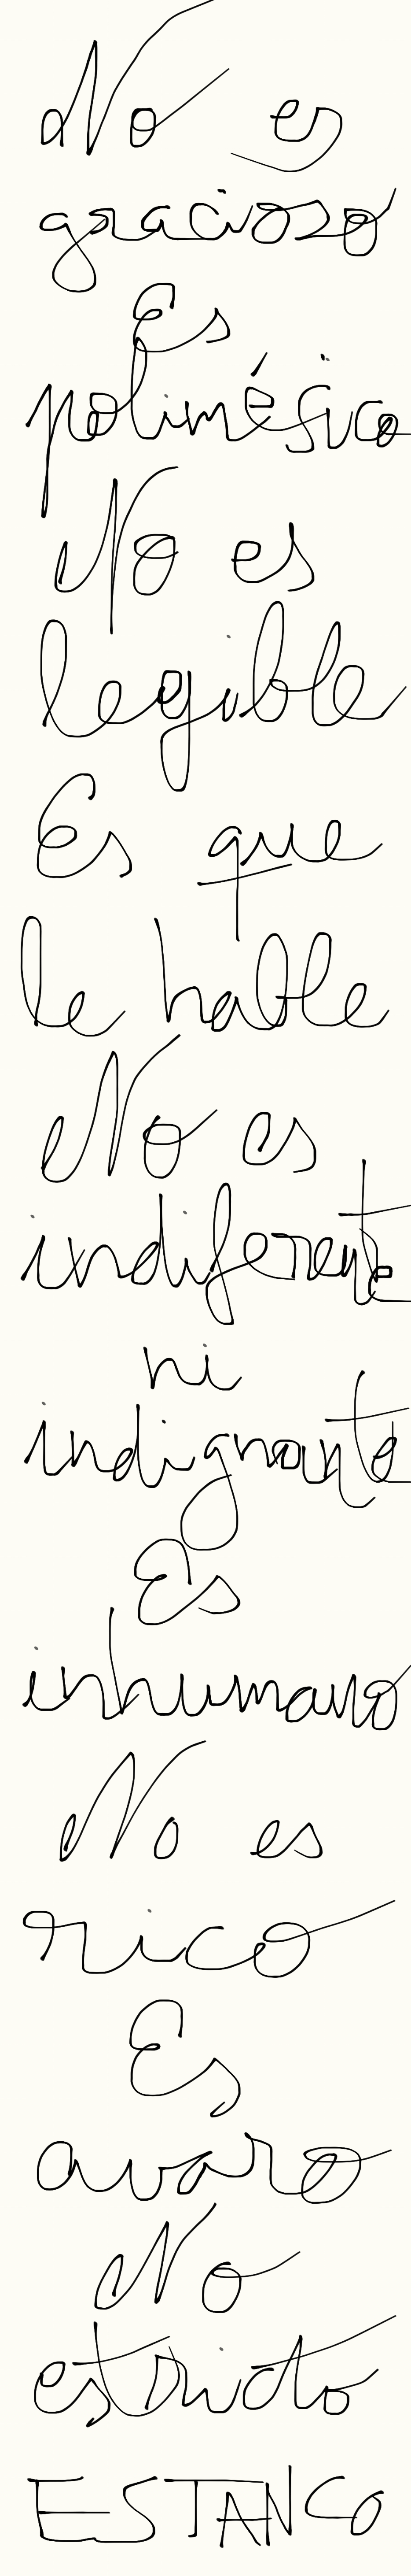 No es
gracioso
Es
polimésico
No es
legible
Es que
le hable
No es
indiferente
ni
indignante
Es
inhumano
No es
rico
Es
avaro
No
estricto
ESTANCO